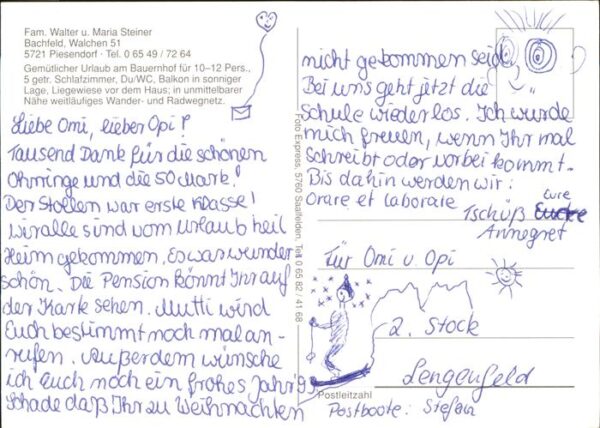 Fam. Walter u. Maria Steiner
Bachfeld, Walchen 51
5721 Piesendorf · Tel. 0 65 49 / 72 64
Gemütlicher Urlaub am Bauernhof für 10–12 Pers.,
5 getr. Schlafzimmer, Du/WC, Balkon in sonniger
Lage, Liegewiese vor dem Haus; in unmittelbarer
Nähe weitläufiges Wander- und Radwegnetz.
Liebe Omi, lieber Opi!
Tausend Dank für die schönen
Ohrringe und die 50 Mark!
Der Stollen war erste Klasse!
Wir alle sind vom Urlaub heil
Heim gekommen. Es war wunder
schön. Die Pension könnt Ihr auf
der Karte sehen. Mutti wird
Euch bestimmt noch mal an-
rufen. Außerdem wünsche
ich Euch noch ein frohes Jahr 93
Schade daß Ihr zu Weihnachten
Foto Express, 5760 Saalfelden, Tel. 0 65 82 / 41 68
nicht gekommen seid.
Bei uns geht jetzt die
Schule wieder los. Ich wurde
mich freuen, wenn Ihr mal
schreibt oder vorbei kommt.
Bis dahin werden wir:
Orare et laborare
Tschüß Eure
Annegret
Für Omi u. Opi
2. Stock
Lengenfeld
Postleitzahl
Postbote: Stefan